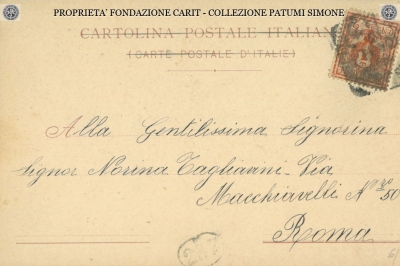 PROPRIETA' FONDAZIONE CARIT - COLLEZIONE PATUMI SIMONE
CARTOLINA POSTALE ITALIANA
(CARTE POSTALE D'ITALIE)
Alla Gentilissima Signorina
Signor Norina Tagliavani - Via
Macchiavelli N° 50
Roma